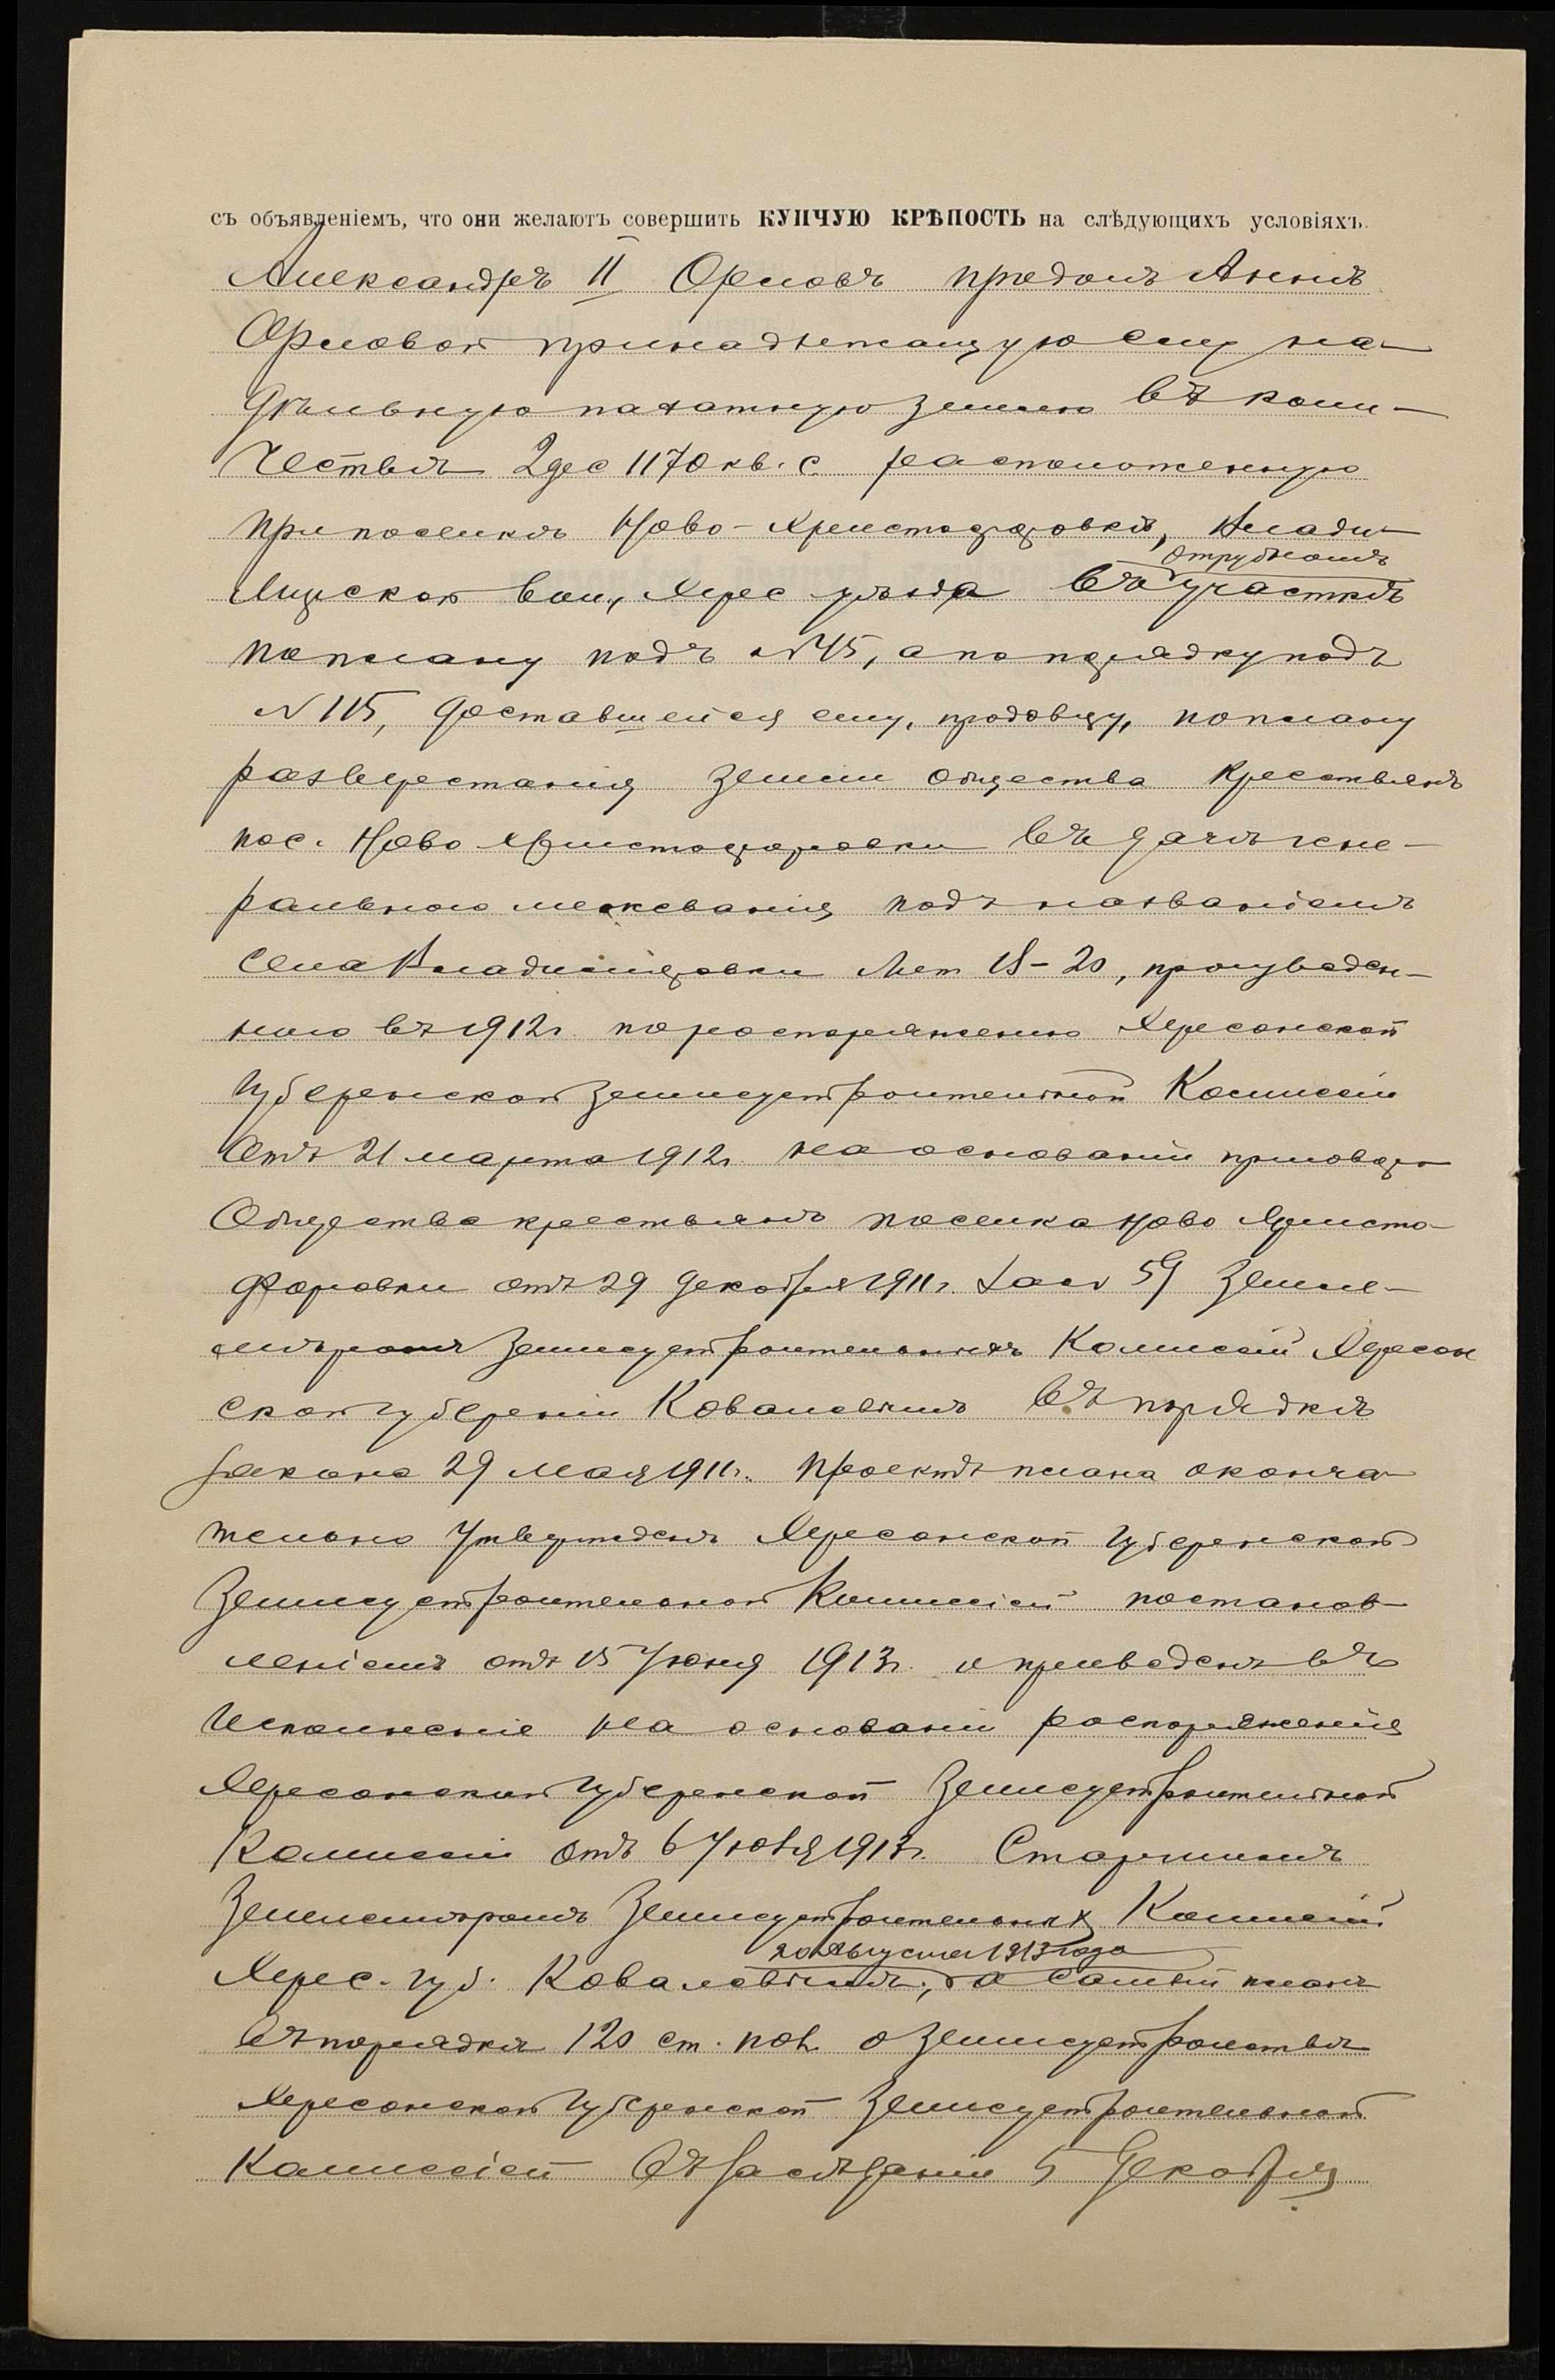 съ объявленіемъ, что они желаютъ совершить КУПЧУЮ КРѢПОСТЬ на слѣдующихъ условіяхъ.
Александръ II Орловъ продалъ Аннѣ
Орловой принадлежащую ему на-
дѣльную пахатную землю въ коли-
чествѣ 2 дес 1170 кв. с расположенную
при поселкѣ Ново-Христофоровкѣ, Влади-
отрубномъ
мирской вол., Херс уѣзда въ участкѣ
по плану подъ №45, а по порядку подъ
№115, доставшейся ему, продавцу, по плану
разверстанія земли общества крестьянъ
пос. Ново Христофоровки въ дачѣ гене-
ральнаго межеванія подъ названіемъ
села Владиміровки Лит 18-20, произведен-
наго въ 1912г. по распоряженію Херсонской
Губернской Землеустроительной Комиссіи
отъ 21 марта 1912г. на основаніи приговора
Общества крестьянъ поселка Ново Христо-
форовки отъ 29 декабря 1911г. за № 59 Земле-
мѣромъ Землеустроительныхъ Комиссій Херсон
ской губерніи Ковалевымъ въ порядкѣ
закона 29 мая 1911г. Проектъ плана оконча-
тельно утвержденъ Херсонской Губернской
Землеустроительной Комиссіей постанов-
леніемъ отъ 15 Іюня 1913г. и приведенъ въ
исполненіе на основаніи распоряженія
Херсонской Губернской Землеустроительной
Комиссіи отъ 6 Іюля 1913г. Старшимъ
Землемѣромъ Землеустроительныхъ Комиссій
20 Августа 1913 года
Херс. губ. Ковалевымъ, а самый планъ
въ порядкѣ 120 ст. пол. о Землеустройствѣ
Херсонской Губернской Землеустроительной
Комиссіей въ засѣданіи 5 Декабря